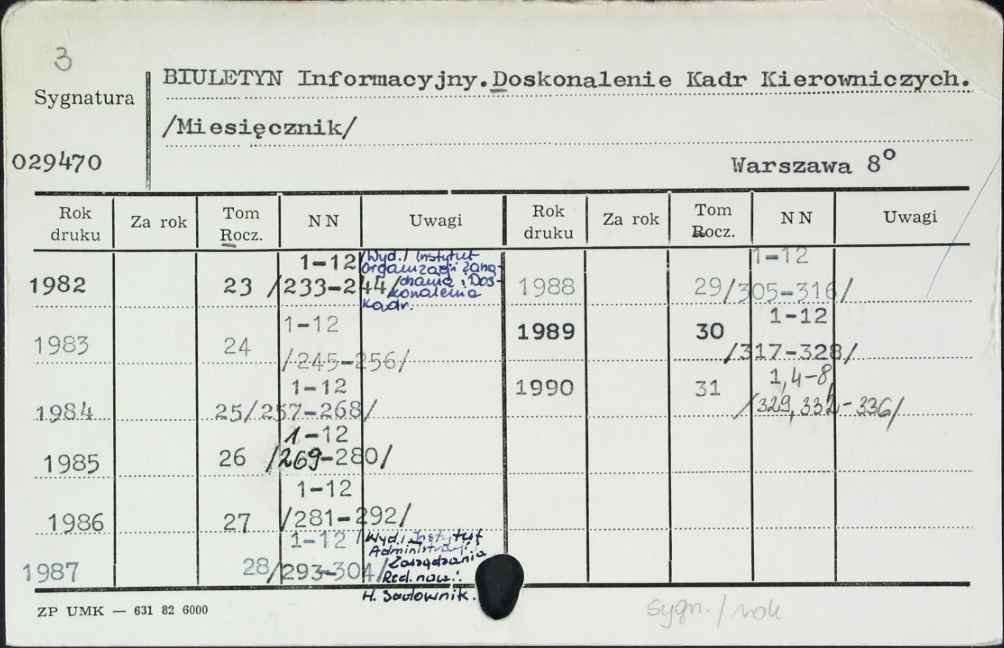 3
Sygnatura
029470
BIULETYN Informacyjny. Doskonalenie Kadr Kierowniczych.
/Miesięcznik/
Warszawa 8°
Rok druku Za rok Tom Rocz. NN Uwagi Rok druku Za rok Tom Rocz. NN Uwagi
1982 23 1-12 /233-244/ Wyd.: Instytut
Organizacji Zarzą-
dzania i Dos-
konalenia
Kadr.
1983 24 1-12 /245-256/
1984 25 1-12 /257-268/
1985 26 1-12 /269-280/
1986 27 1-12 /281-292/
1987 28 1-12 /293-304/ Wyd.: Instytut
Administracji
i Zarządzania
Red. nacz.:
H. Sadownik.
1988 29 1-12 /305-316/
1989 30 1-12 /317-328/
1990 31 1,4-8, /329,332-336/
ZP UMK — 631 82 6000
sygn./rok